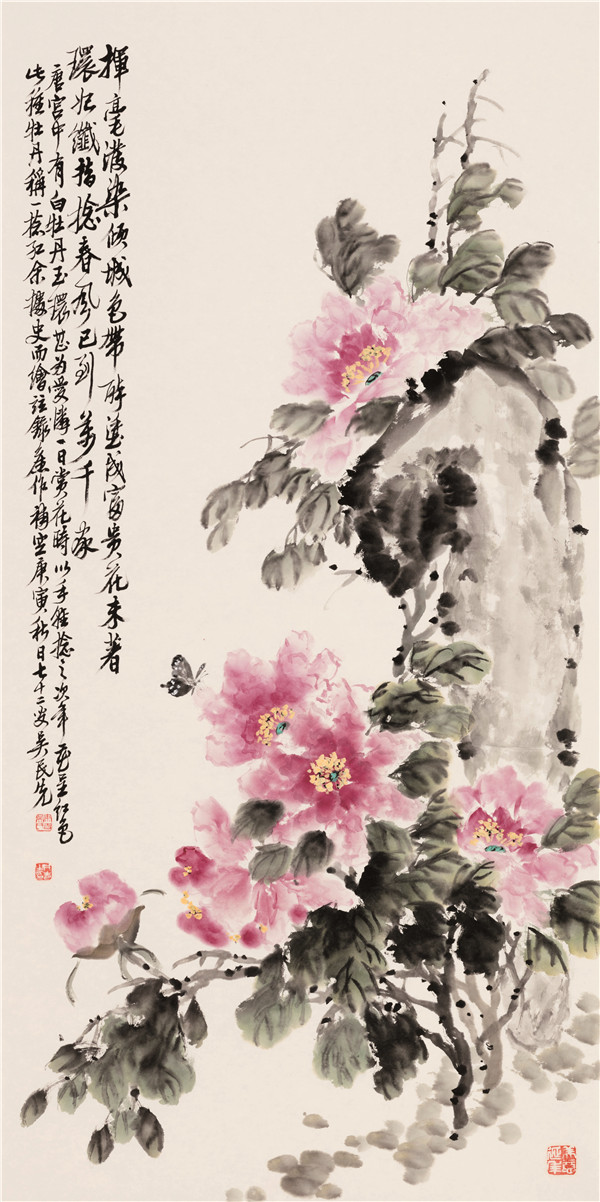 揮毫潑染傾城色帶醉塗成富貴花未著
環妃纖指捻春風已到萬千家
唐宮中有白牡丹玉環甚為愛憐一日賞花時以手輕捻之次年花呈紅色
此種牡丹稱一捻紅余據史而繪錄舊作補空庚寅秋日七十二叟吳民先
美意延年